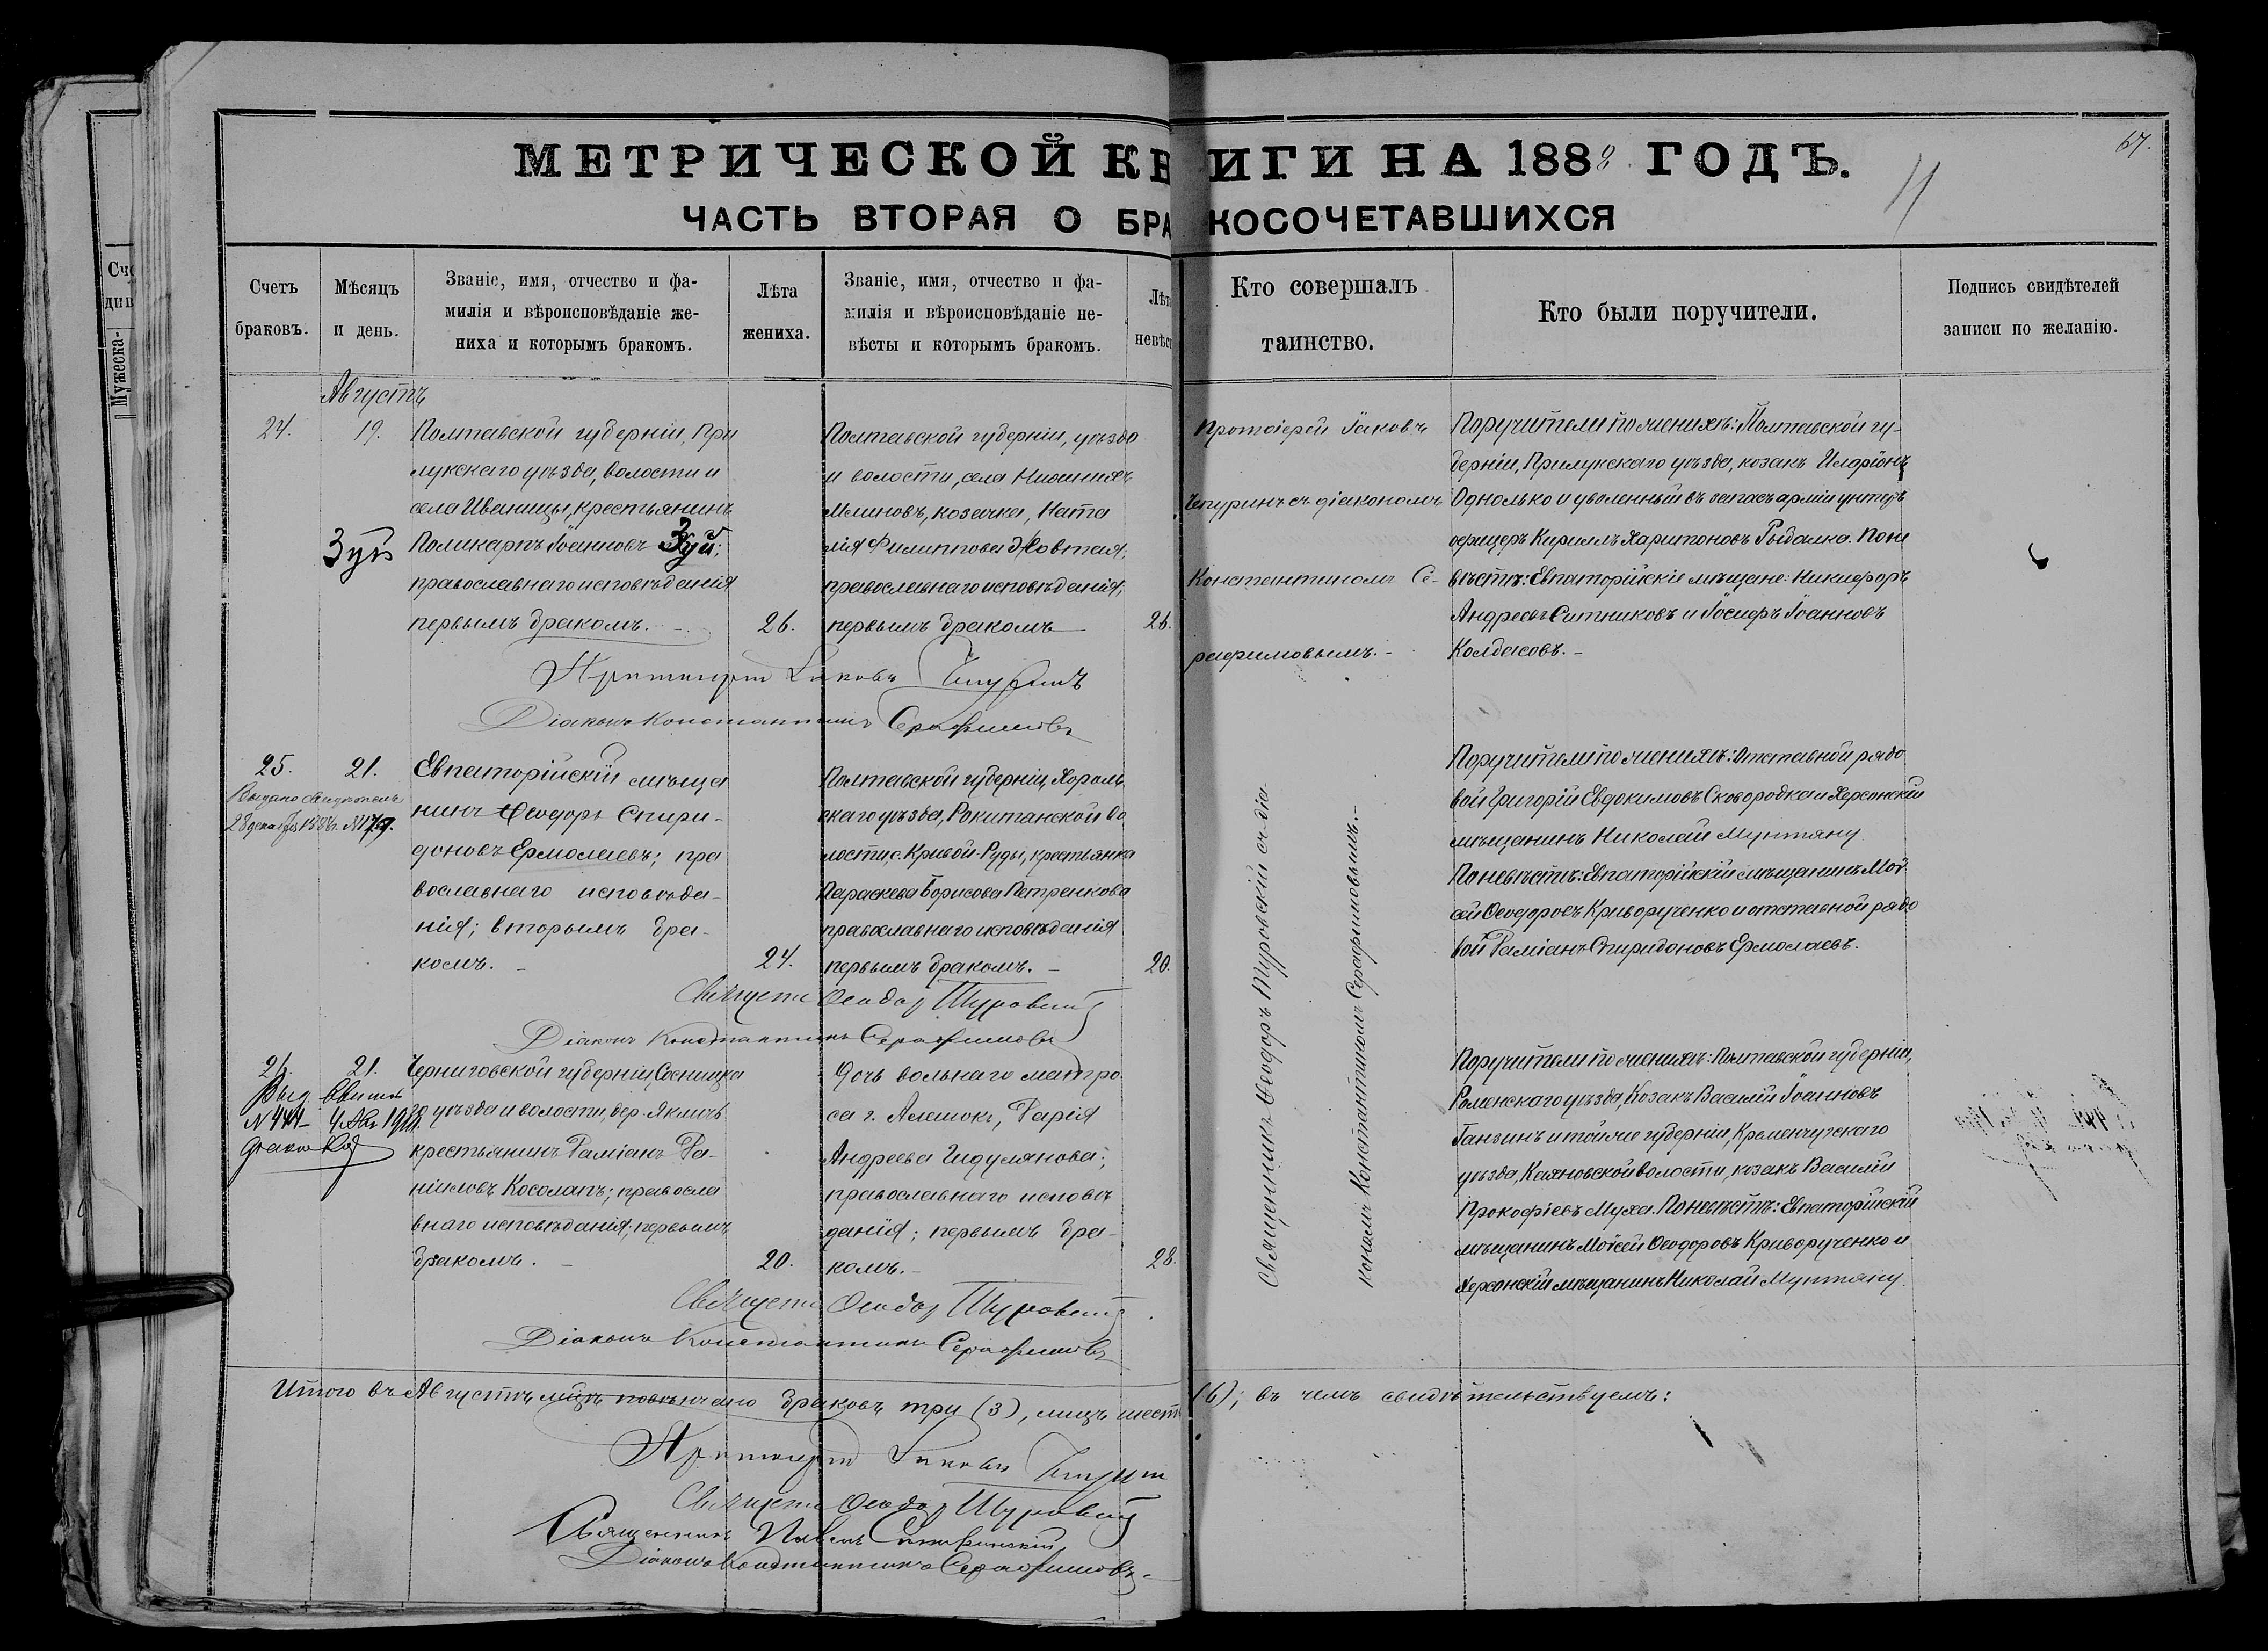 МЕТРИЧЕСКОЙ КНИГИ НА 1888 ГОДЪ.
67.
11
ЧАСТЬ ВТОРАЯ О БРАКОСОЧЕТАВШИХСЯ
Счетъ браковъ.
Мѣсяцъ и день.
Званіе, имя, отчество и фа-
милія и вѣроисповѣданіе же-
ниха и которымъ бракомъ.
Лѣта жениха.
Званіе, имя, отчество и фа-
милія и вѣроисповѣданіе не-
вѣсты и которымъ бракомъ.
Лѣта невѣст
Кто совершалъ
таинство.
Кто были поручители.
Подпись свидѣтелей
записи по желанію.
Августъ
24.
19.
Зуй
Полтавской губерніи, При
лукскаго уѣзда, волости и
села Иваницы, крестьянинъ
Поликарпъ Іоанновъ Зуй;
православнаго исповѣданія
первымъ бракомъ. -
26.
Полтавской губерніи, уѣзда
и волости, села Нижнихъ
Млиновъ, козачка, Ната
лія Филиппова Жовтая;
православнаго исповѣданія;
первымъ бракомъ
26.
Протоіерей Іаковъ
Чепуринъ съ діакономъ
Константиномъ Се-
рафимовымъ. -
Поручители по женихѣ: Полтавской гу-
берніи, Прилукскаго уѣзда, козакъ Иларіонъ
Однолько и уволенный въ запасъ арміи унтеръ
офицеръ Кириллъ Харитоновъ Рыдалка. По не
вѣстѣ: Евпаторійскіе мѣщане: Никифоръ
Андреевъ Ситниковъ и Іосифъ Іоанновъ
Колдасовъ. -
Протоіерей Іаковъ Чепуринъ
Діаконъ Константинъ Серафимовъ
25.
21.
Выдано свидѣтель
28 декабря 1888 г. №179.
Евпаторійскій мѣща
нинъ Ѳеодоръ Спири-
доновъ Ермолаевъ; пра
вославнаго исповѣда-
нія; вторымъ бра-
комъ. -
24.
Полтавской губерніи, Хороль
скаго уѣзда, Рокитанской во
лости, с. Кривой-Руды, крестьянка
Параскева Борисова Петренкова
православнаго исповѣданія
первымъ бракомъ. -
20.
Священникъ Ѳеодоръ Туровскій съ діа
кономъ Константиномъ Серафимовымъ. -
Поручители по женихѣ: Отставной рядо
вой Григорій Евдокимовъ Сковородка и Херсонскій
мѣщанинъ Николай Мунтяну.
По невѣстѣ: Евпаторійскій мѣщанинъ Мой
сей Ѳеодоровъ Криворученко и отставной рядо
вой Даміанъ Спиридоновъ Ермолаевъ.
Священ Ѳеодор Туровскій
Діаконъ Константинъ Серафимовъ
26.
21.
Выд. Свит
№ 441
Черниговской губерніи, Сосницка
го уѣзда и волости, дер. Якличъ
крестьянинъ Даміанъ Да-
ніиловъ Косолапъ; правосла
внаго исповѣданія; первымъ
бракомъ. -
20.
Дочь вольнаго матро
са г. Алешокъ, Дарія
Андреева Гидулянова;
православнаго исповѣ
данія; первымъ бра-
комъ. -
28.
Поручители по женихѣ: Полтавской губерніи,
Роменскаго уѣзда, козакъ Василій Іоанновъ
Ганзинъ и той же губерніи, Кременчугскаго
уѣзда, Кахновской волости, козакъ Василій
Прокофіевъ Муха. По невѣстѣ: Евпаторійскій
мѣщанинъ Мойсей Ѳеодоровъ Криворученко и
Херсонскій мѣщанинъ Николай Мунтяну.
Священ Ѳеодор Туровскій
Діаконъ Константинъ Серафимовъ
Итого въ Августѣ мцѣ повѣнчано браковъ три (3), лицъ шесть (6); въ чемъ свидѣтельствуемъ:
Протоіерей Іаковъ Чепурин
Священ Ѳеодор Туровскій
Священникъ Павелъ
Діаконъ Константинъ Серафимовъ.